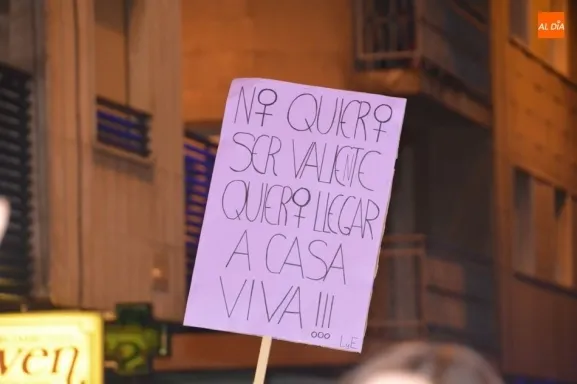 AL DÍA
N♀ QUIER♀
SER VALIENTE
QUIER♀ LLEGAR
A CASA
VIVA !!!
LyE
ven